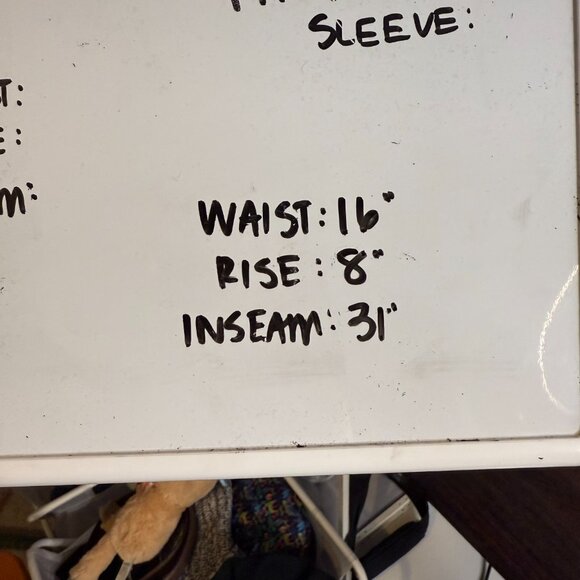 SLEEVE:
WAIST: 16"
RISE: 8"
INSEAM: 31"